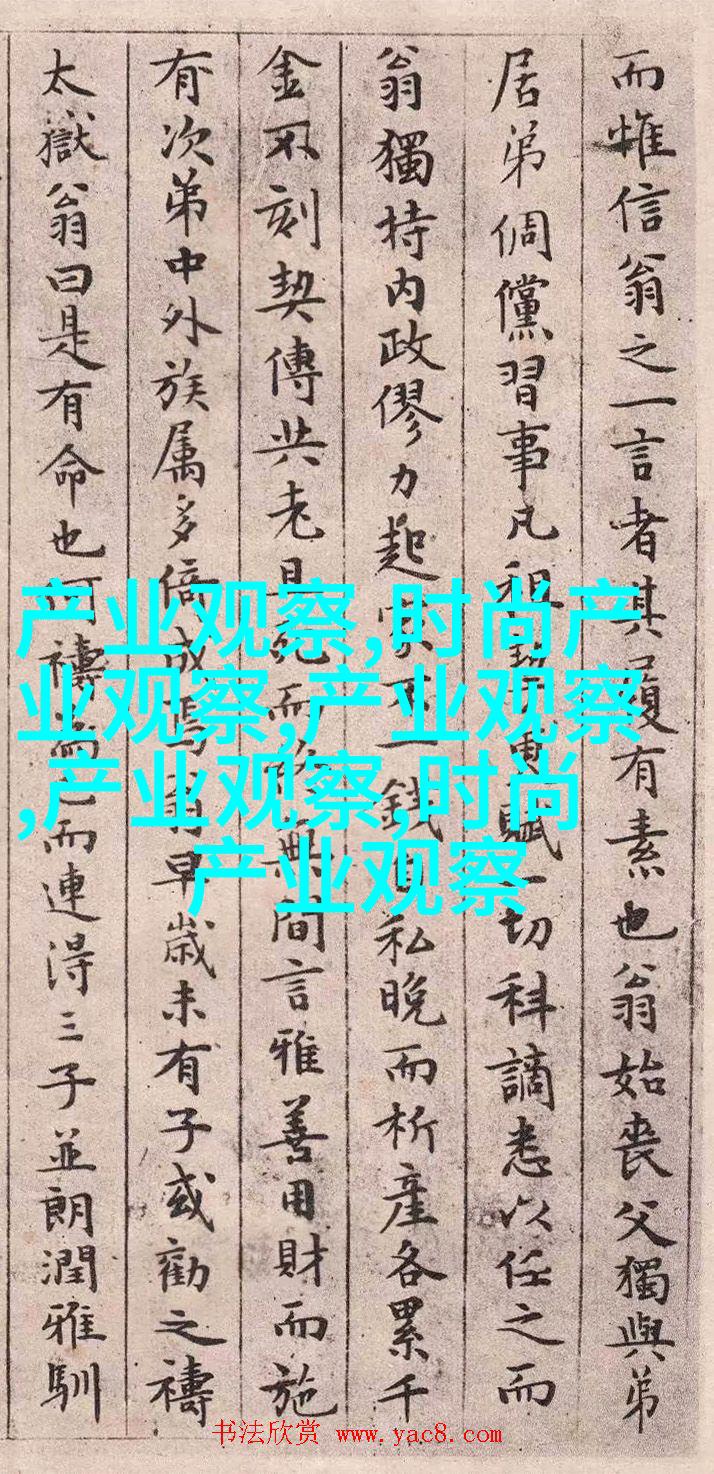 而惟信翁之一言者其履有素也翁始喪父獨與弟
居弟倜儻習事凡租契更賦一切科謫悉以任之而
翁獨持内政僇力起家不一錢自私晚而析產各累千
金不刻契傳共老且死而 無間言雅善用財而施
有次第中外族属多倍成焉翁早歲未有子或勸之禱
太嶽翁曰是有命也何禱為已而連得三子並朗潤雅馴
产业观察,时尚产
业观察,产业观察
,产业观察,时尚
产业观察
书法欣赏 www.yac8.com